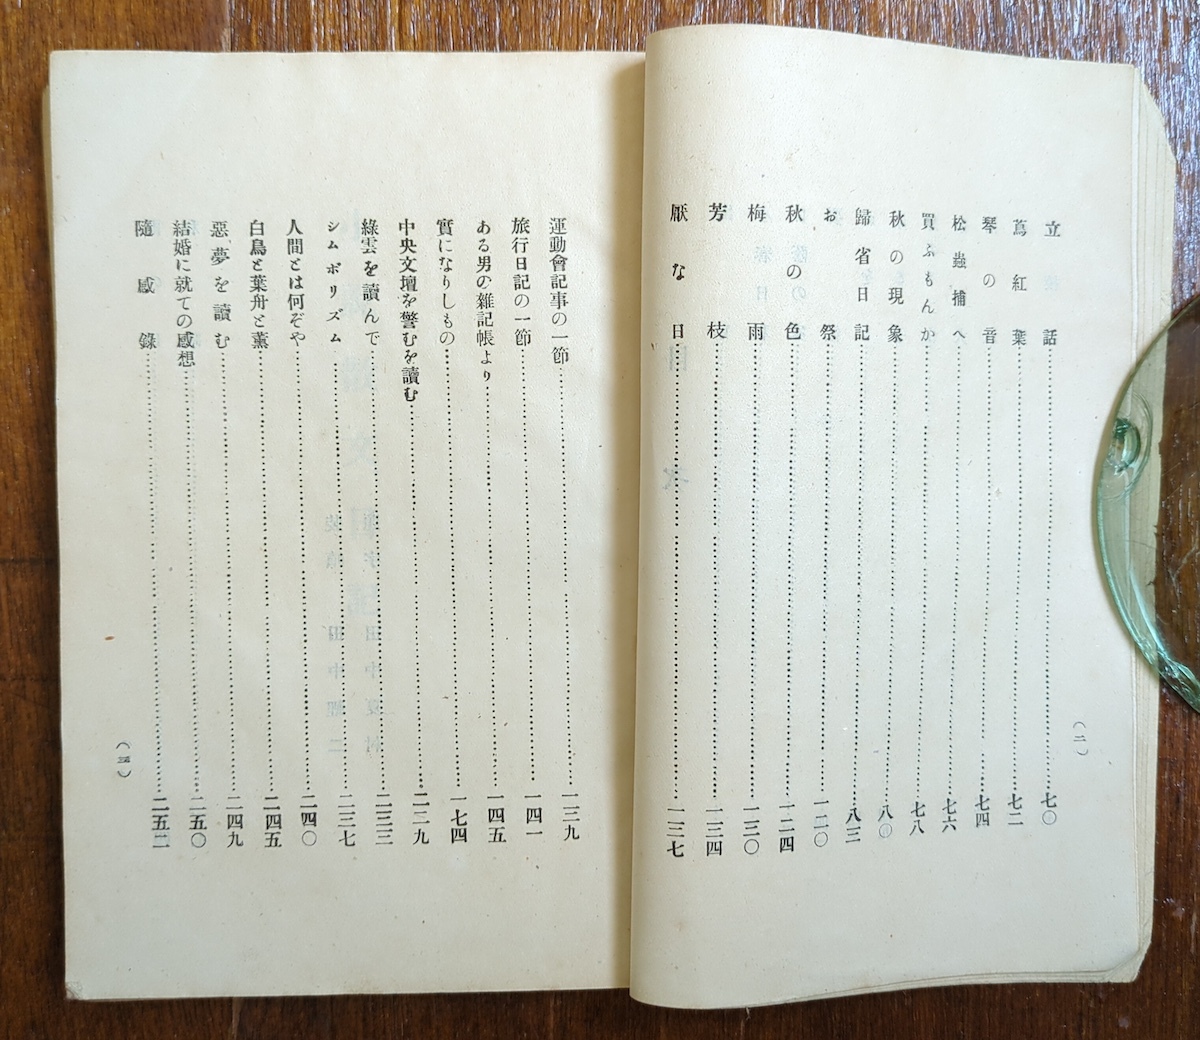 立話……七〇
蔦紅葉……七二
琴の音……七四
松蟲捕へ……七六
買ふもんか……七八
秋の現象……八〇
歸省日記……八三
お祭……一二〇
秋の色……一二四
梅雨……一三〇
芳枝……一三四
厭な日……一三七
(二)
運動會記事の一節……一三九
旅行日記の一節……一四一
ある男の雜記帳より……一四五
實になりしもの……一七四
中央文壇を警むを讀む……二二九
綠雲を讀んで……二三三
シムボリズム……二三七
人間とは何ぞや……二四〇
白鳥と葉舟と薰……二四五
惡夢を讀む……二四九
結婚に就ての感想……二五〇
隨感錄……二五二